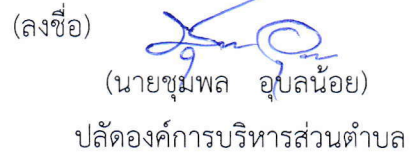 (ลงชื่อ)
(นายชุมพล อุบลน้อย)
ปลัดองค์การบริหารส่วนตำบล